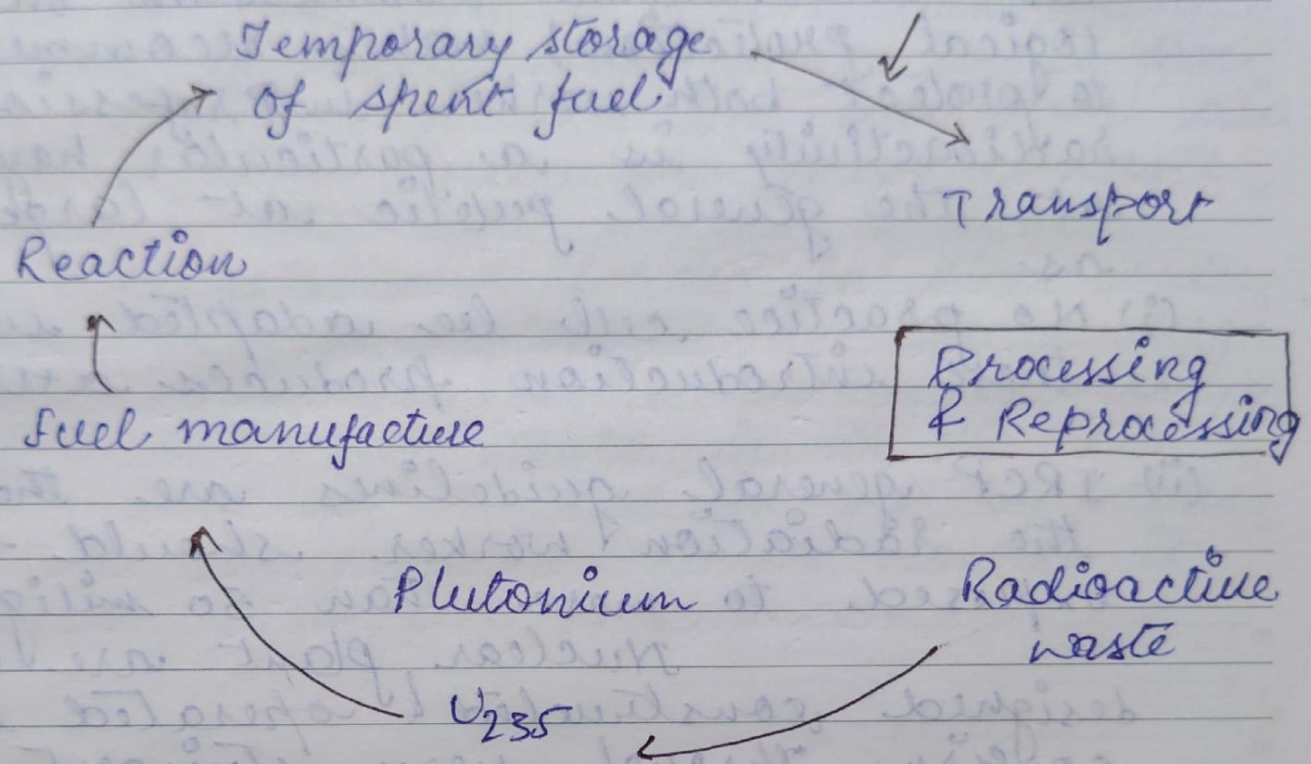 Temporary storage
of spent fuel
Transport
Reaction
Processing
& Reprocessing
fuel manufacture
Plutonium
Radioactive
waste
U235